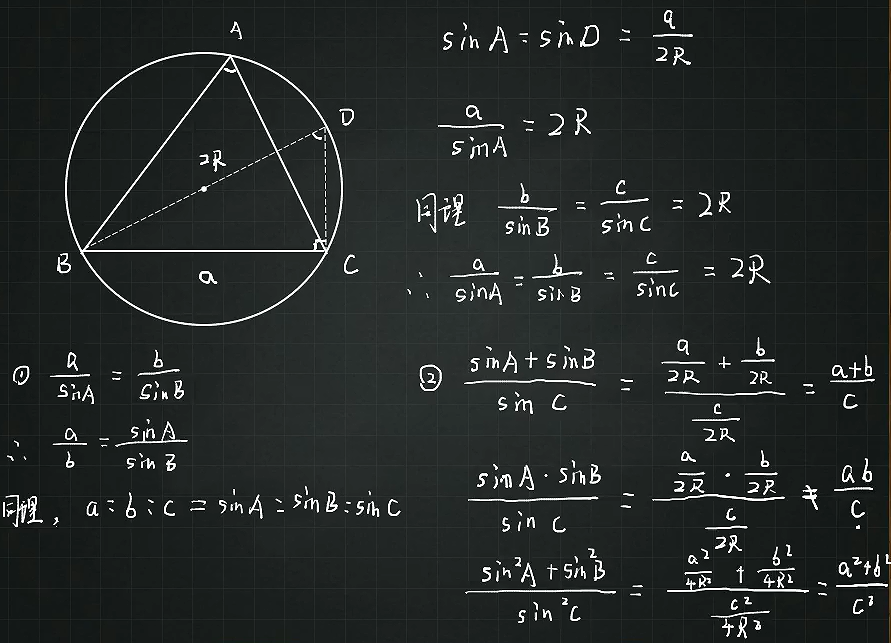 A
D
2R
B
C
a
sinA = sinD = a/2R
a/sinA = 2R
同理 b/sinB = c/sinC = 2R
∴ a/sinA = b/sinB = c/sinC = 2R
① a/sinA = b/sinB
∴ a/b = sinA/sinB
同理, a:b:c = sinA:sinB:sinC
② (sinA+sinB)/sin C = (a/2R + b/2R)/(c/2R) = (a+b)/c
(sinA·sinB)/sin C = (a/2R · b/2R)/(c/2R) ≠ ab/c
(sin²A+sin²B)/sin²C = (a²/4R² + b²/4R²)/(c²/4R²) = (a²+b²)/c²